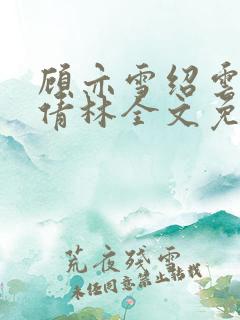 顾亦雪绍云
倩林全文免
荒夜残雪
未经同意禁止转载